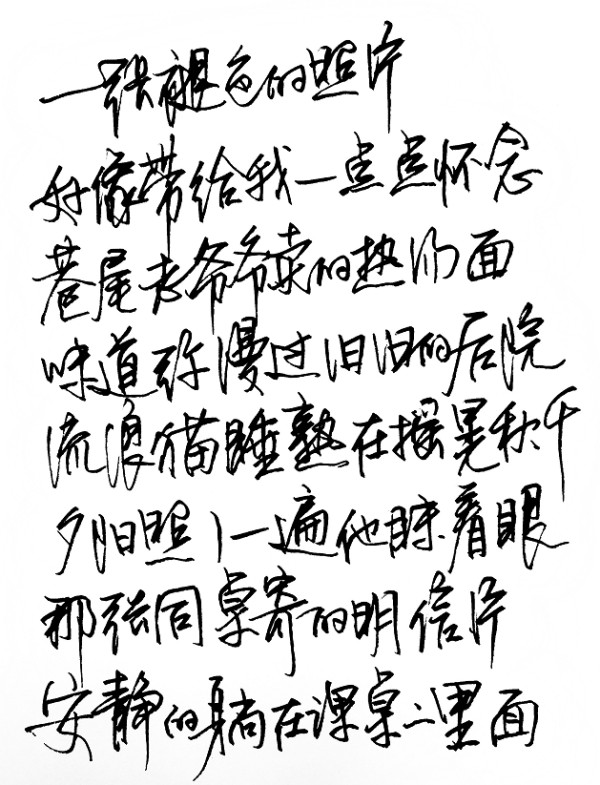 一张褪色的照片
好像带给我一点点怀念
巷尾老爷爷卖的热汤面
味道弥漫过旧旧的后院
流浪猫睡熟在摇晃秋千
夕阳照了一遍他眯着眼
那张同桌寄的明信片
安静的躺在课桌里面